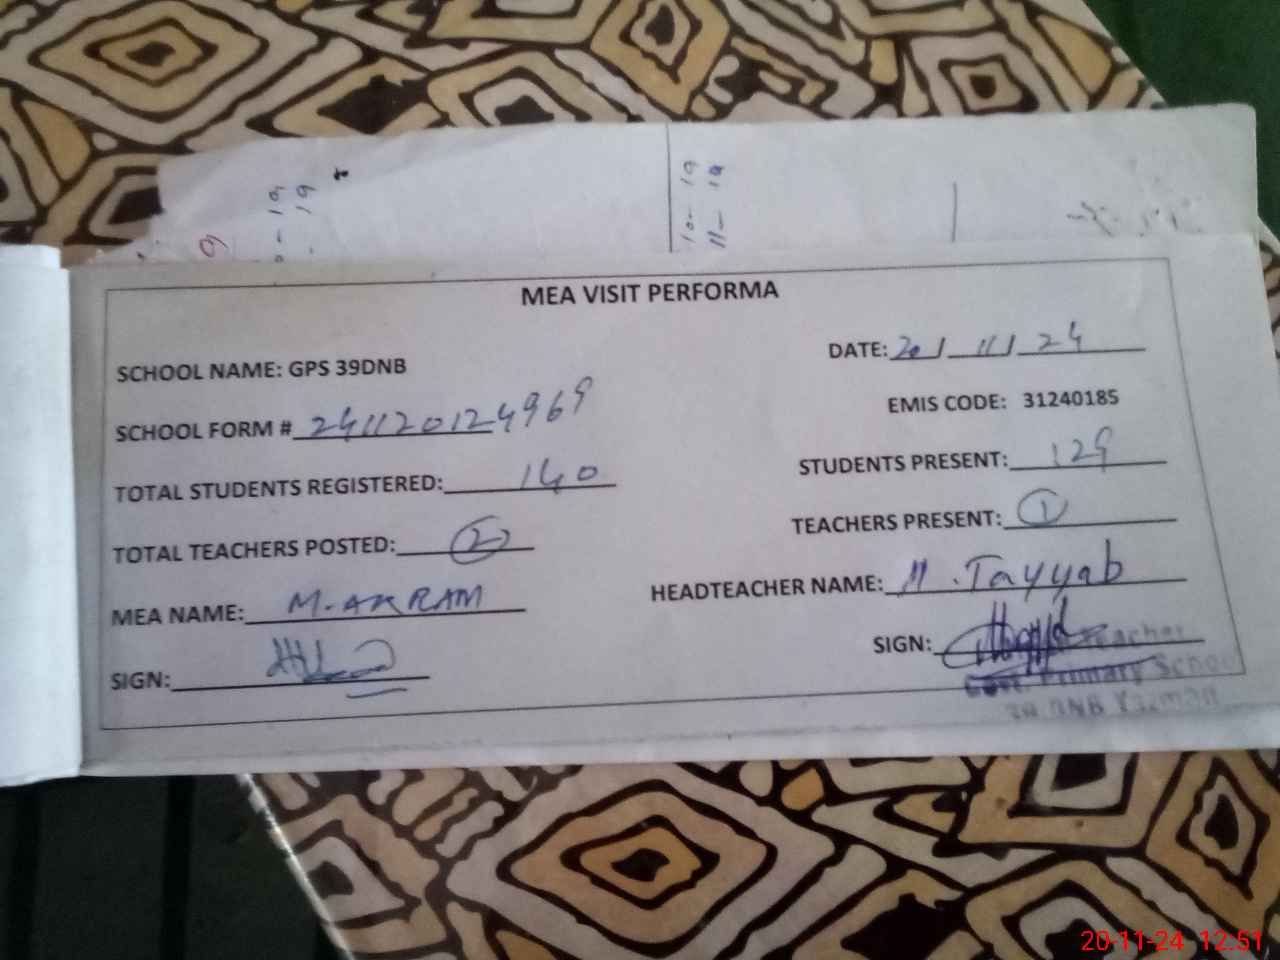 10- 19
11- 19
MEA VISIT PERFORMA
SCHOOL NAME: GPS 39DNB
DATE: 20/11/24
SCHOOL FORM # 241120124969
EMIS CODE: 31240185
TOTAL STUDENTS REGISTERED: 140
STUDENTS PRESENT: 129
TOTAL TEACHERS POSTED: 2
TEACHERS PRESENT: 1
MEA NAME: M.AKRAM
HEADTEACHER NAME: M.Tayyab
SIGN:
SIGN:
Teacher
Govt. Primary School
39 DNB Yazman
20-11-24 12:51